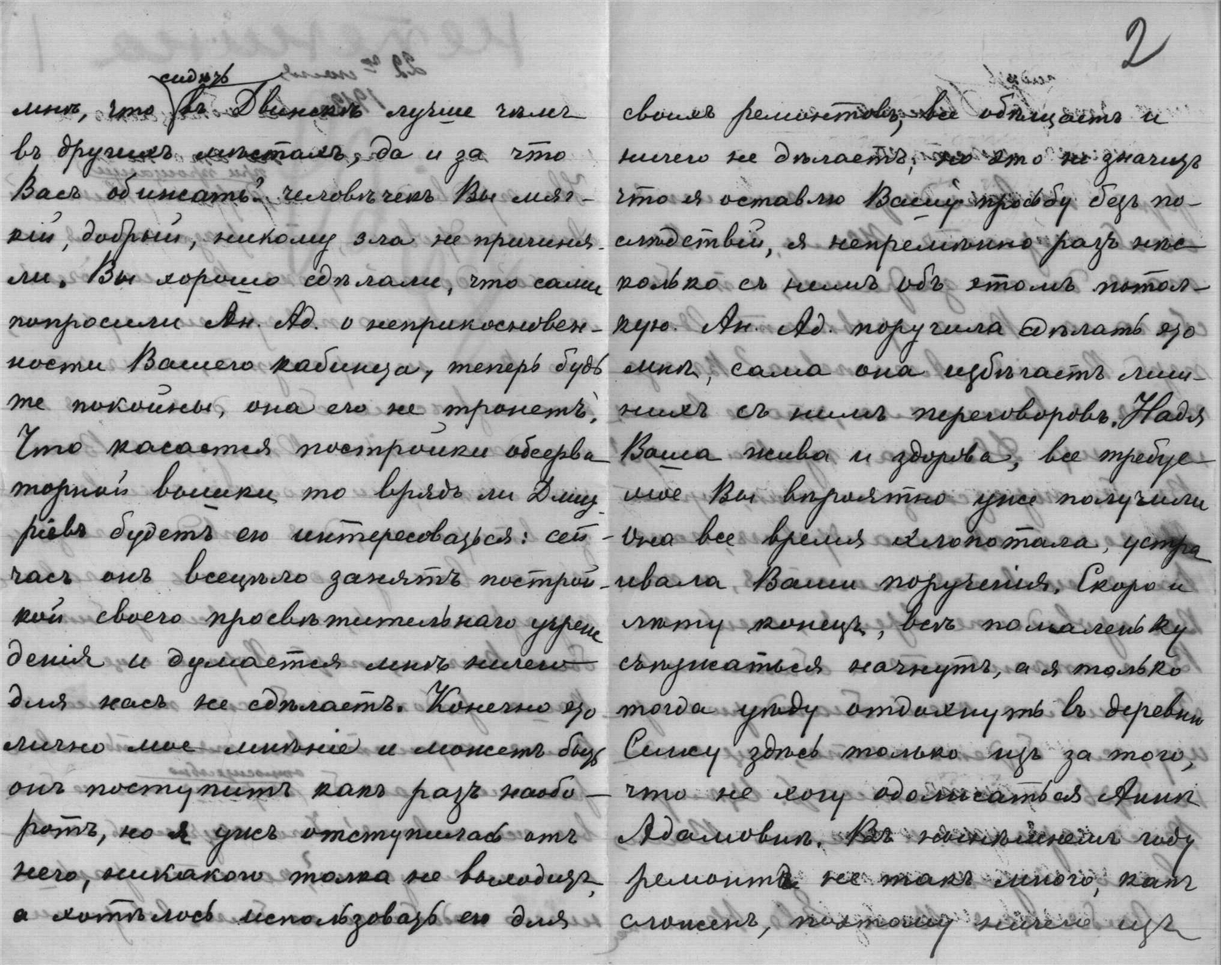 2
сидѣть
мнѣ, что въ Двинскѣ лучше чѣмъ
въ другихъ мѣстахъ, да и за что
Васъ обижать? человѣчекъ Вы мяг-
кій, добрый, никому зла не причиня-
ли. Вы хорошо сдѣлали, что сами
попросили Ан. Ад. о неприкосновен-
ности Вашего кабинета, теперь будь
те покойны, она его не тронетъ.
Что касается постройки обсерва
торной вышки, то врядъ ли Дмит
ріевъ будетъ ею интересоваться: сей-
часъ онъ всецѣло занятъ построй-
кой своего просвѣтительнаго учреж
денія и думается мнѣ ничего
для насъ не сдѣлаетъ. Конечно это
лично мое мнѣніе и можетъ быть
онъ поступитъ какъ разъ наобо-
ротъ, но я ужъ отступилась отъ
него, никакого толка не выходитъ,
а хотѣлось использовать его для
своихъ ремонтовъ, все обѣщаетъ и
ничего не дѣлаетъ; но это не значитъ
что я оставлю Вашу просьбу безъ по-
слѣдствій, я непремѣнно разъ нѣс-
колько съ нимъ объ этомъ потол-
кую. Ан. Ад. поручила сдѣлать это
мнѣ, сама она избѣгаетъ лиш-
нихъ съ нимъ переговоровъ. Надя
Ваша жива и здорова, все требуе-
мое Вы вѣроятно уже получили
она все время хлопотала, устра
ивала Ваши порученія. Скоро и
лѣту конецъ, всѣ помаленьку
съѣзжаться начнутъ, а я только
тогда уѣду отдохнуть въ деревню
Сижу здѣсь только изъ за того,
что не хочу одолжаться Аннѣ
Адамовнѣ. Въ нынѣшнемъ году
ремонтъ не такъ много, какъ
сложенъ, поэтому ничего изъ